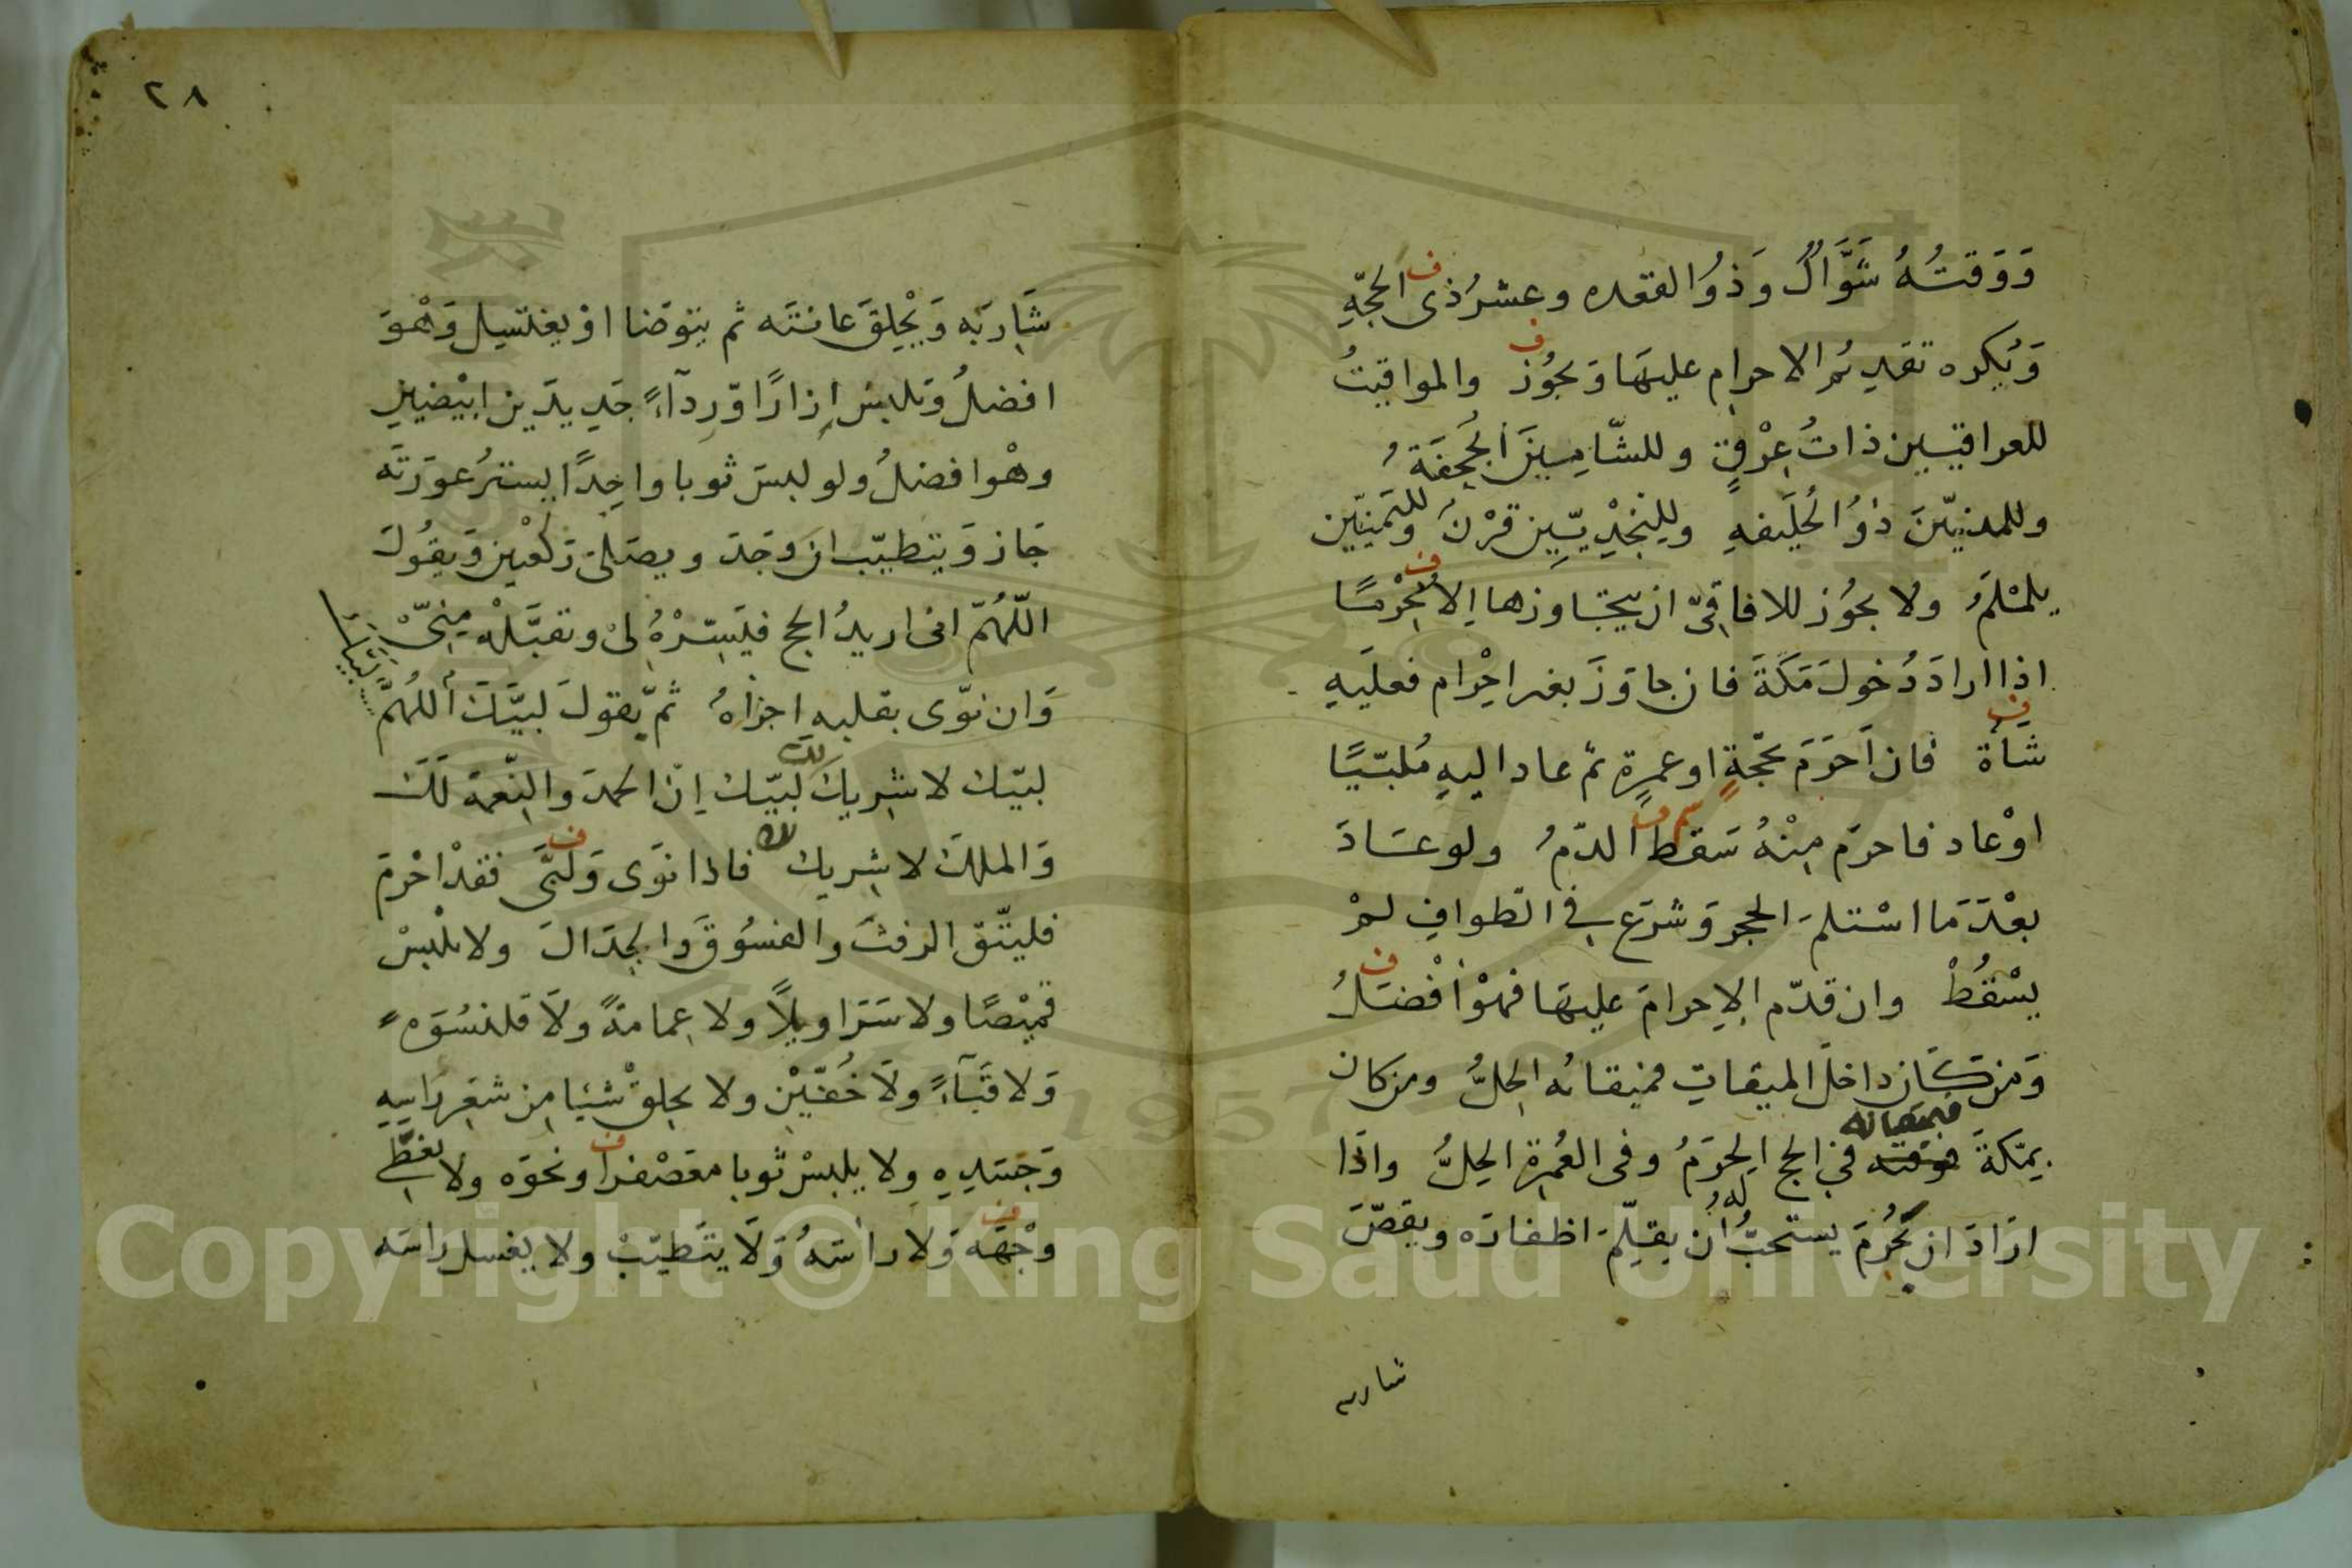 وَوَقتُهُ شَوَّالٌ وَذُو القعده وعشرُ ذى الحجّةِ
ف
وَيُكره تقديمُ الاحرام عليهَا وَيجُوز والمواقيتُ
ف
للعراقيين ذاتُ عِرْقٍ وللشّامِيينَ الجُحفَةُ
وللمدنيّينَ ذوُ الحُلَيفهِ وللنجْدِيّينِ قرْنٌ ولليَمَنيّين
يلمْلَمُ ولا يجوُز للافاقِىّ ان يتجَاوزها اِلا مُحْرِمًا
ف
اذا ارادَ دُخولَ مَكةَ فان جاوَزَ بغير احْرام فعلَيهِ
شَاة فان اَحرَمَ بحّجةٍ او عمرةٍ ثم عاد اليهِ مُلبّيًا
ف
اوْ عاد فاحرَم مِنْهُ سَقطَ الدّمُ ولو عَادَ
سم ف
بعْدَ مَا اسْتلمَ الحجر وَشرَع فى الطوافِ لمْ
يسْقُطْ وان قدّم الاِحرامَ عليهَا فهوْ أفْضَلُ
ف
وَمن كَان داخلَ الميقاتِ فميقاته الحِلُّ ومن كان
بمكّةَ فوقته فى الحج الحرَمُ وفى العُمرةِ الحِلُّ واذَا
فميقاته
ارَادَ ان يُحْرِمَ يستحبُّ لهُ أن يقلِّمَ اظفارَه ويقصّ
شاربه
٢٨
شَارِبَه وَيَحْلِقَ عانتَه ثم يتوضا اوْ يغتسِل وَهْوَ
افضلُ وَيلبسُ إزارًا وّرِدآءً جَديدَين ابيْضينِ
وهْو افضلُ ولو لبسَ ثوبا واحِدًا يسترُ عورَته
جَاز وَيتطيّب ان وَجَدَ ويصَلىّ رَكعْتين وَيقُولَ
اللّهُمّ انى اريدُ الحج فيَسِّرْهُ لىْ وتقبَّلْهُ مِنىّ
لبيك
وَان نوّى بقلبه اجزاهُ ثمّ يقولَ لبيّكَ أللهُمَّ
لبيّك لا شرِيكَ لكَ لبيّك اِنّ الحمدَ والنِّعمة لَكَ
وَالملكَ لا شريك لك فاذا نوَى وَلبّى فقدْ احْرمَ
ف
فليتّق الرفثَ والفسُوْقَ وَالجِدَالَ ولا يلبسْ
قميْصًا ولا سَرَاويلًا ولا عِمامةً ولَا قلنسُوَهً
وَلا قبَآءً ولَا خُفّيْن ولا يحلِقْ شيْئا مِن شعَرِ راسِهِ
وَجسَدِهِ ولا يلبسْ ثوبا معَصْفرا ونحوَه ولا يغطّى
ف
وجْهَه وَلا رأسَهُ وَلَا يتَطيّبْ ولا يغسل راسَه
ف